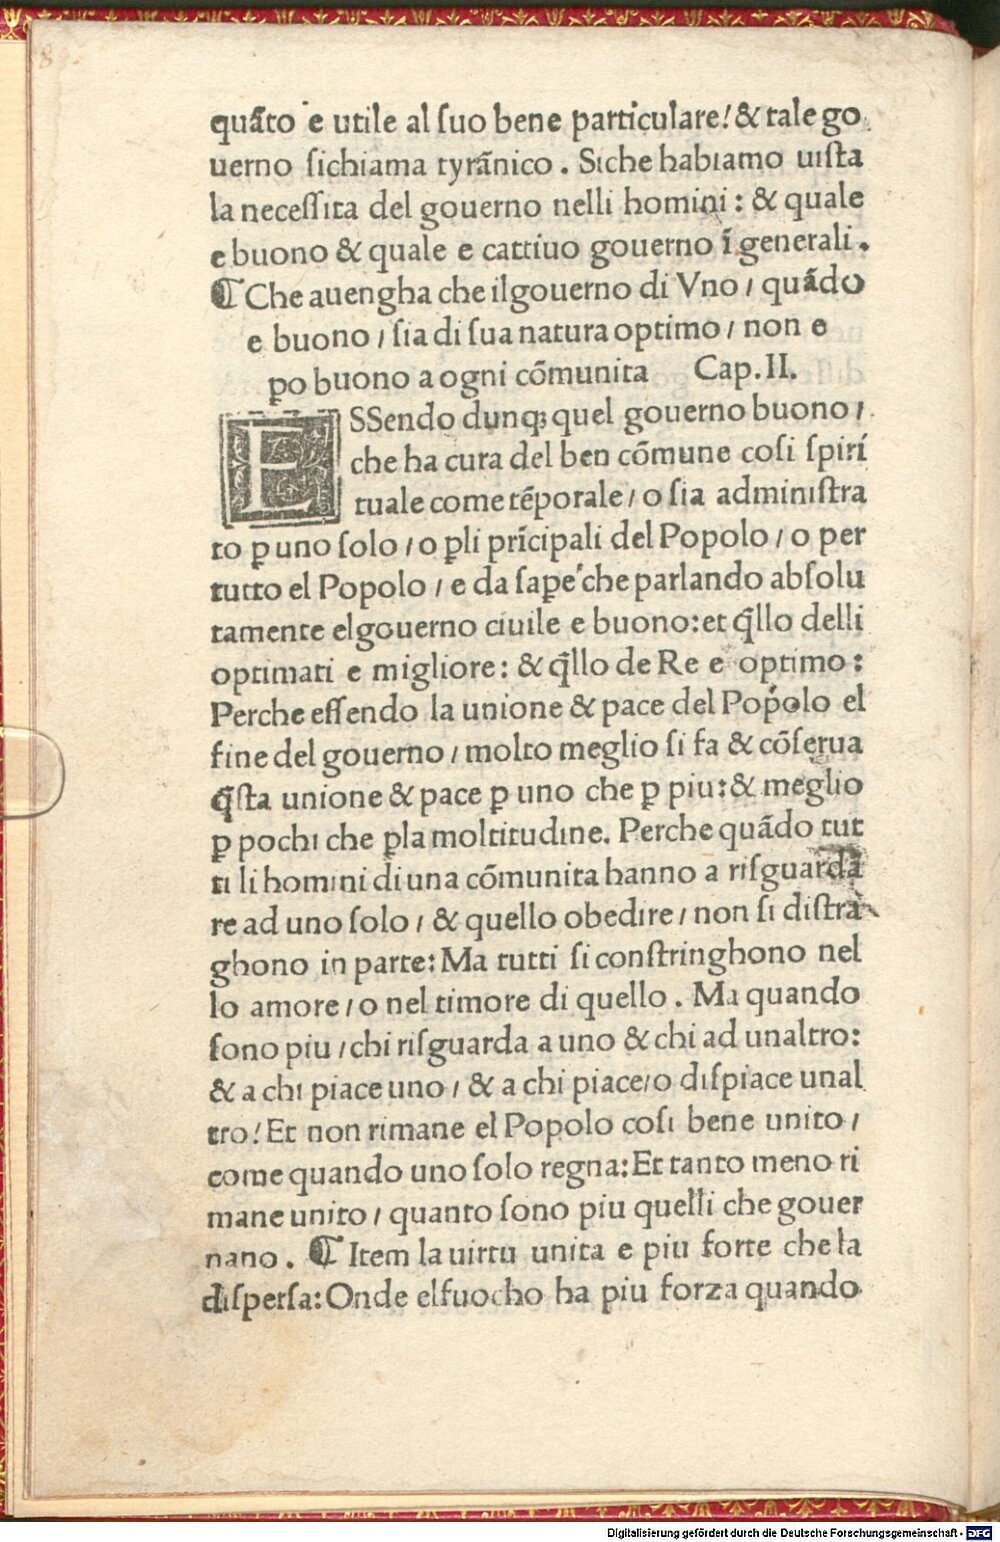 8
quãto e utile al ſuo bene particulare! & tale go
uerno ſichiama tyrãnico . Siche habiamo uiſta
la neceſſita del gouerno nelli homini : & quale
e buono & quale e cattiuo gouerno ĩ generali .
¶ Che auengha che ilgouerno di Vno / quãdo
e buono / ſia di ſua natura optimo / non e
ꝑo buono a ogni cõmunita Cap. II.
ESSendo dunqꝫ quel gouerno buono /
che ha cura del ben cõmune coſi ſpiri
tuale come tẽporale / o ſia adminiſtra
to ꝑ uno ſolo / o ꝑli prĩcipali del Popolo / o per
tutto el Popolo / e da ſaꝑe che parlando abſolu
tamente elgouerno ciuile e buono: et q̃llo delli
optimati e migliore: & q̃llo de Re e optimo :
Perche eſſendo la unione & pace del Popolo el
fine del gouerno / molto meglio ſi fa & cõſerua
q̃ſta unione & pace ꝑ uno che ꝑ piu: & meglio
ꝑ pochi che ꝑla moltitudine. Perche quãdo tut
ti li homini di una cõmunita hanno a riſguarda
re ad uno ſolo / & quello obedire / non ſi diſtra
ghono in parte: Ma tutti ſi conſtringhono nel
lo amore / o nel timore di quello . Ma quando
ſono piu / chi riſguarda a uno & chi ad unaltro:
& a chi piace uno / & a chi piace/o diſpiace unal
tro! Et non rimane el Popolo coſi bene unito /
come quando uno ſolo regna: Et tanto meno ri
mane unito / quanto ſono piu quelli che gouer
nano . ¶ Item la uirtu unita e piu forte che la
diſperſa: Onde elfuocho ha piu forza quando
Digitalisierung gefördert durch die Deutsche Forschungsgemeinschaft - DFG